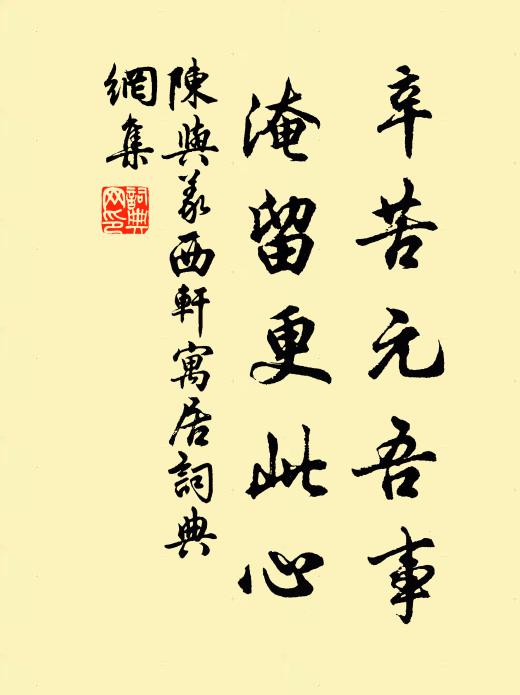 辛苦元吾事
淹留更此心
陳與義西軒寓居詞典
網集
詞典網印